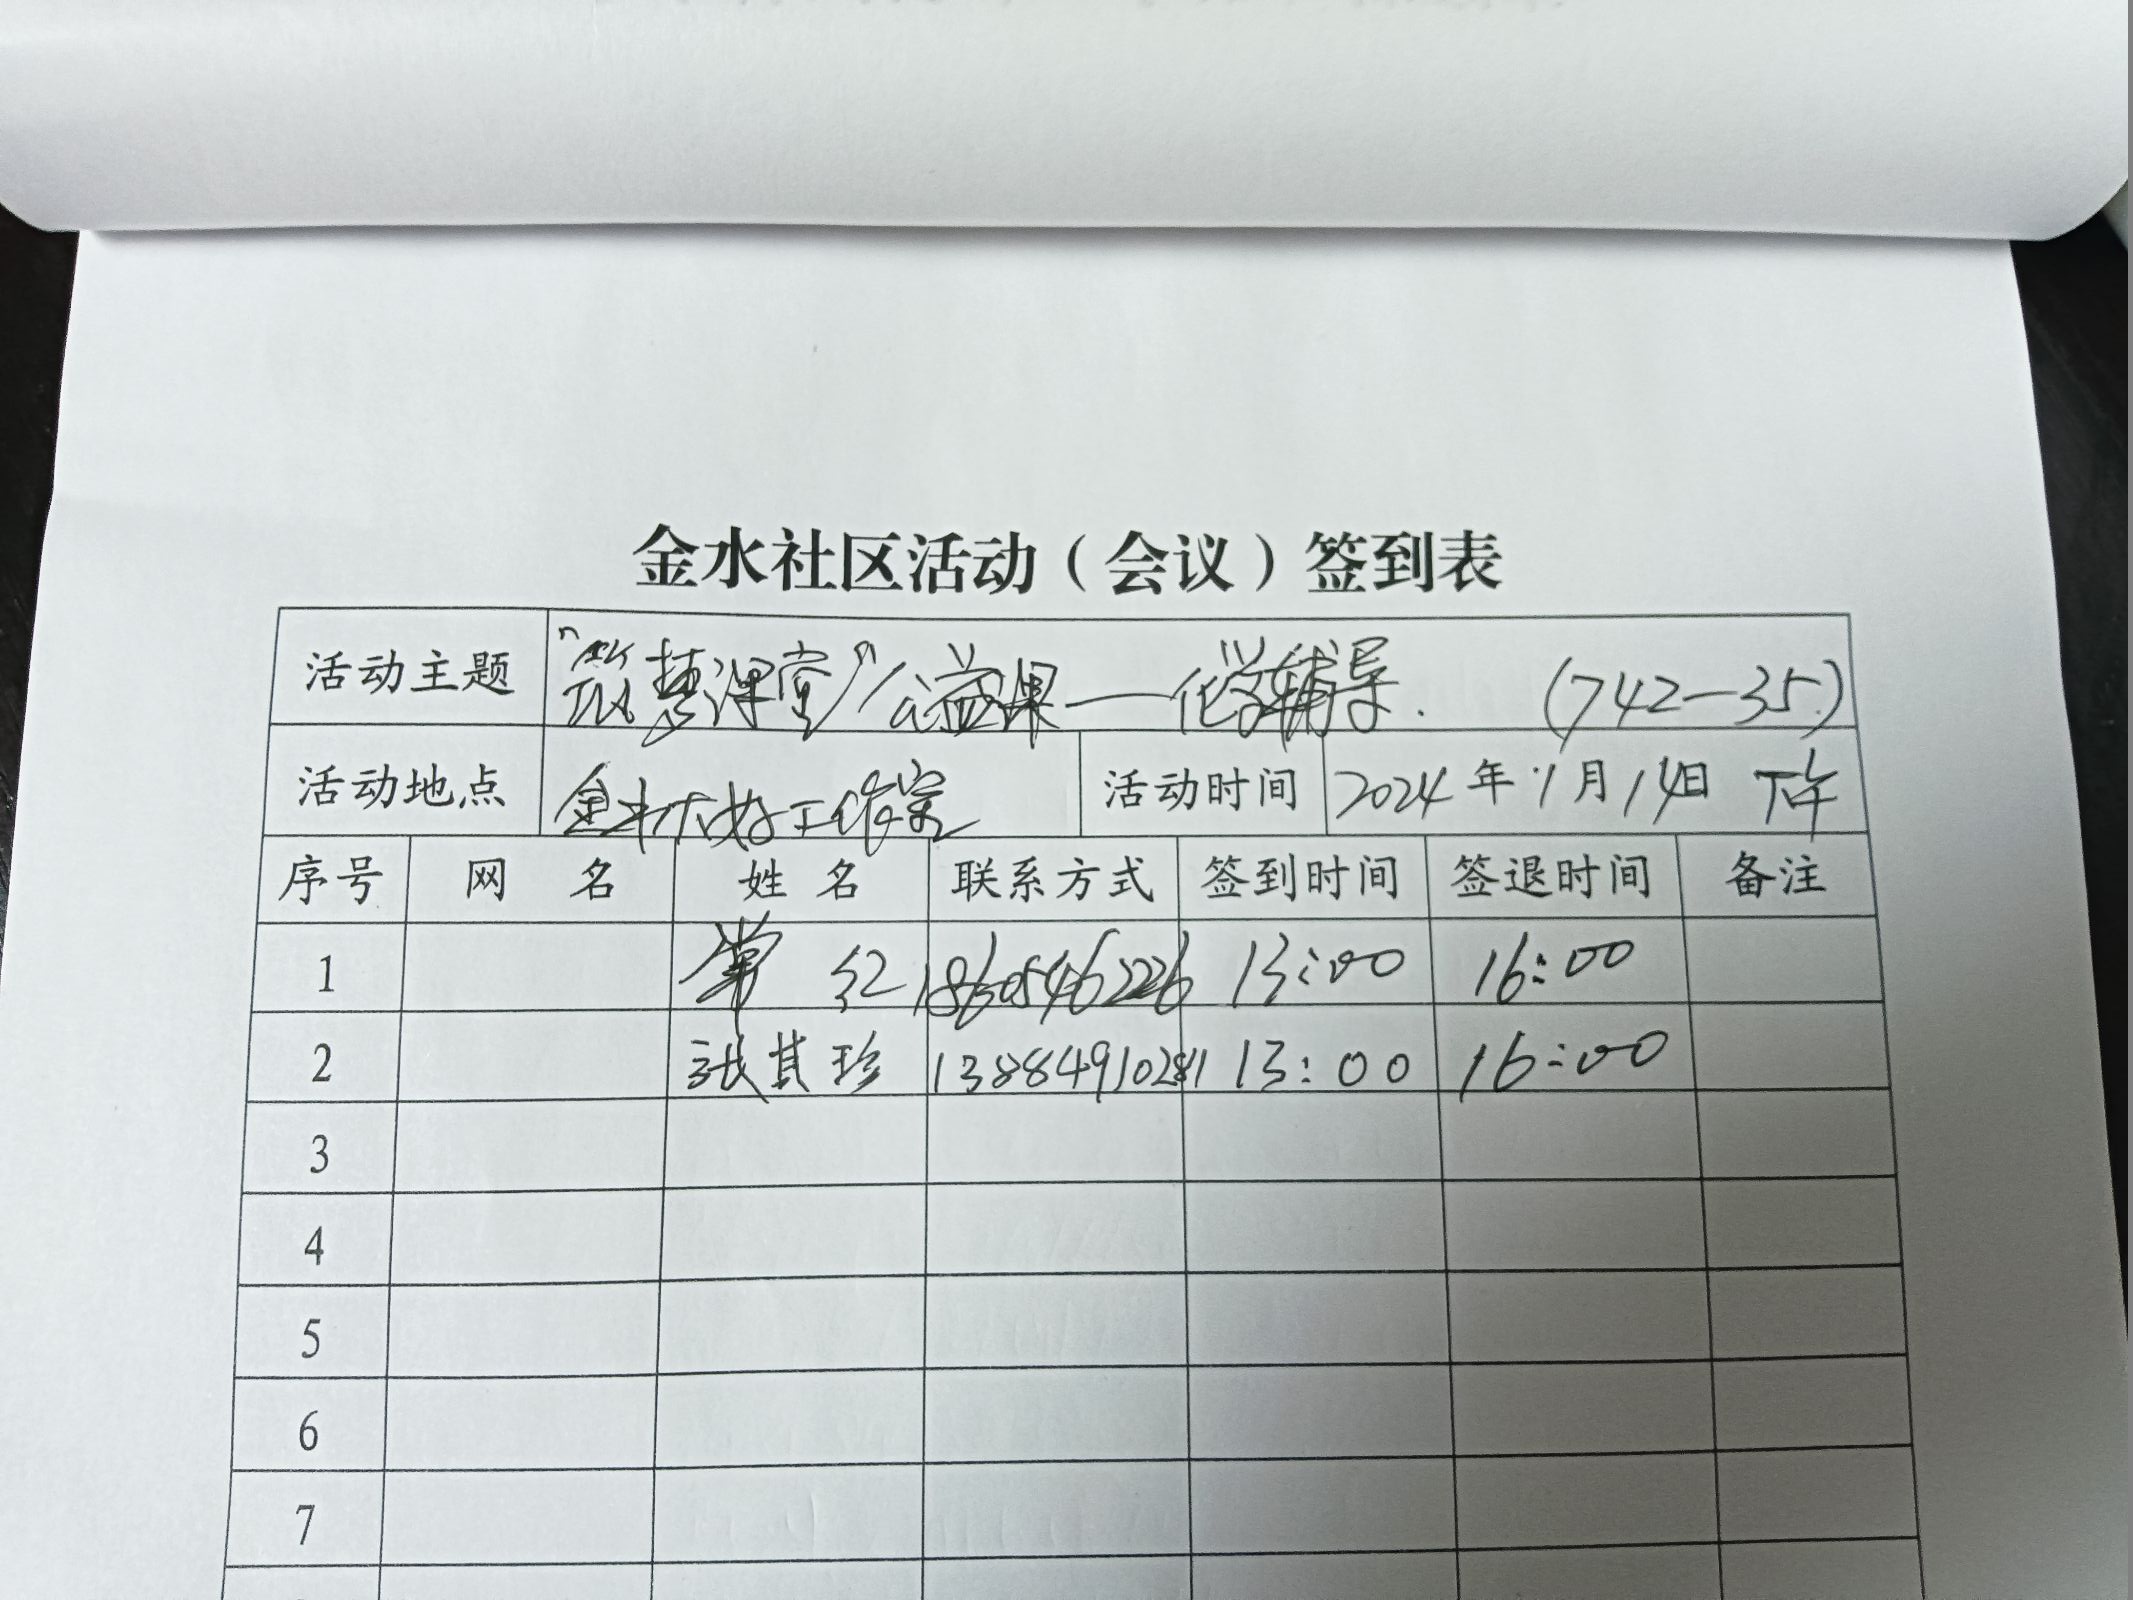 金水社区活动（会议）签到表
活动主题 "筑慧课堂"公益课——化学辅导. (742—35)
活动地点 金水大妈工作室 活动时间 2024年1月14日 下午
序号 网 名 姓 名 联系方式 签到时间 签退时间 备注
1 红 18605462226 13:00 16:00
2 张其珍 13884910281 13:00 16:00
3
4
5
6
7